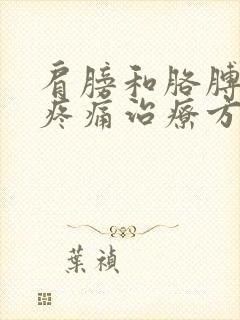 肩膀和胳膊
疼痛治療方
葉禎